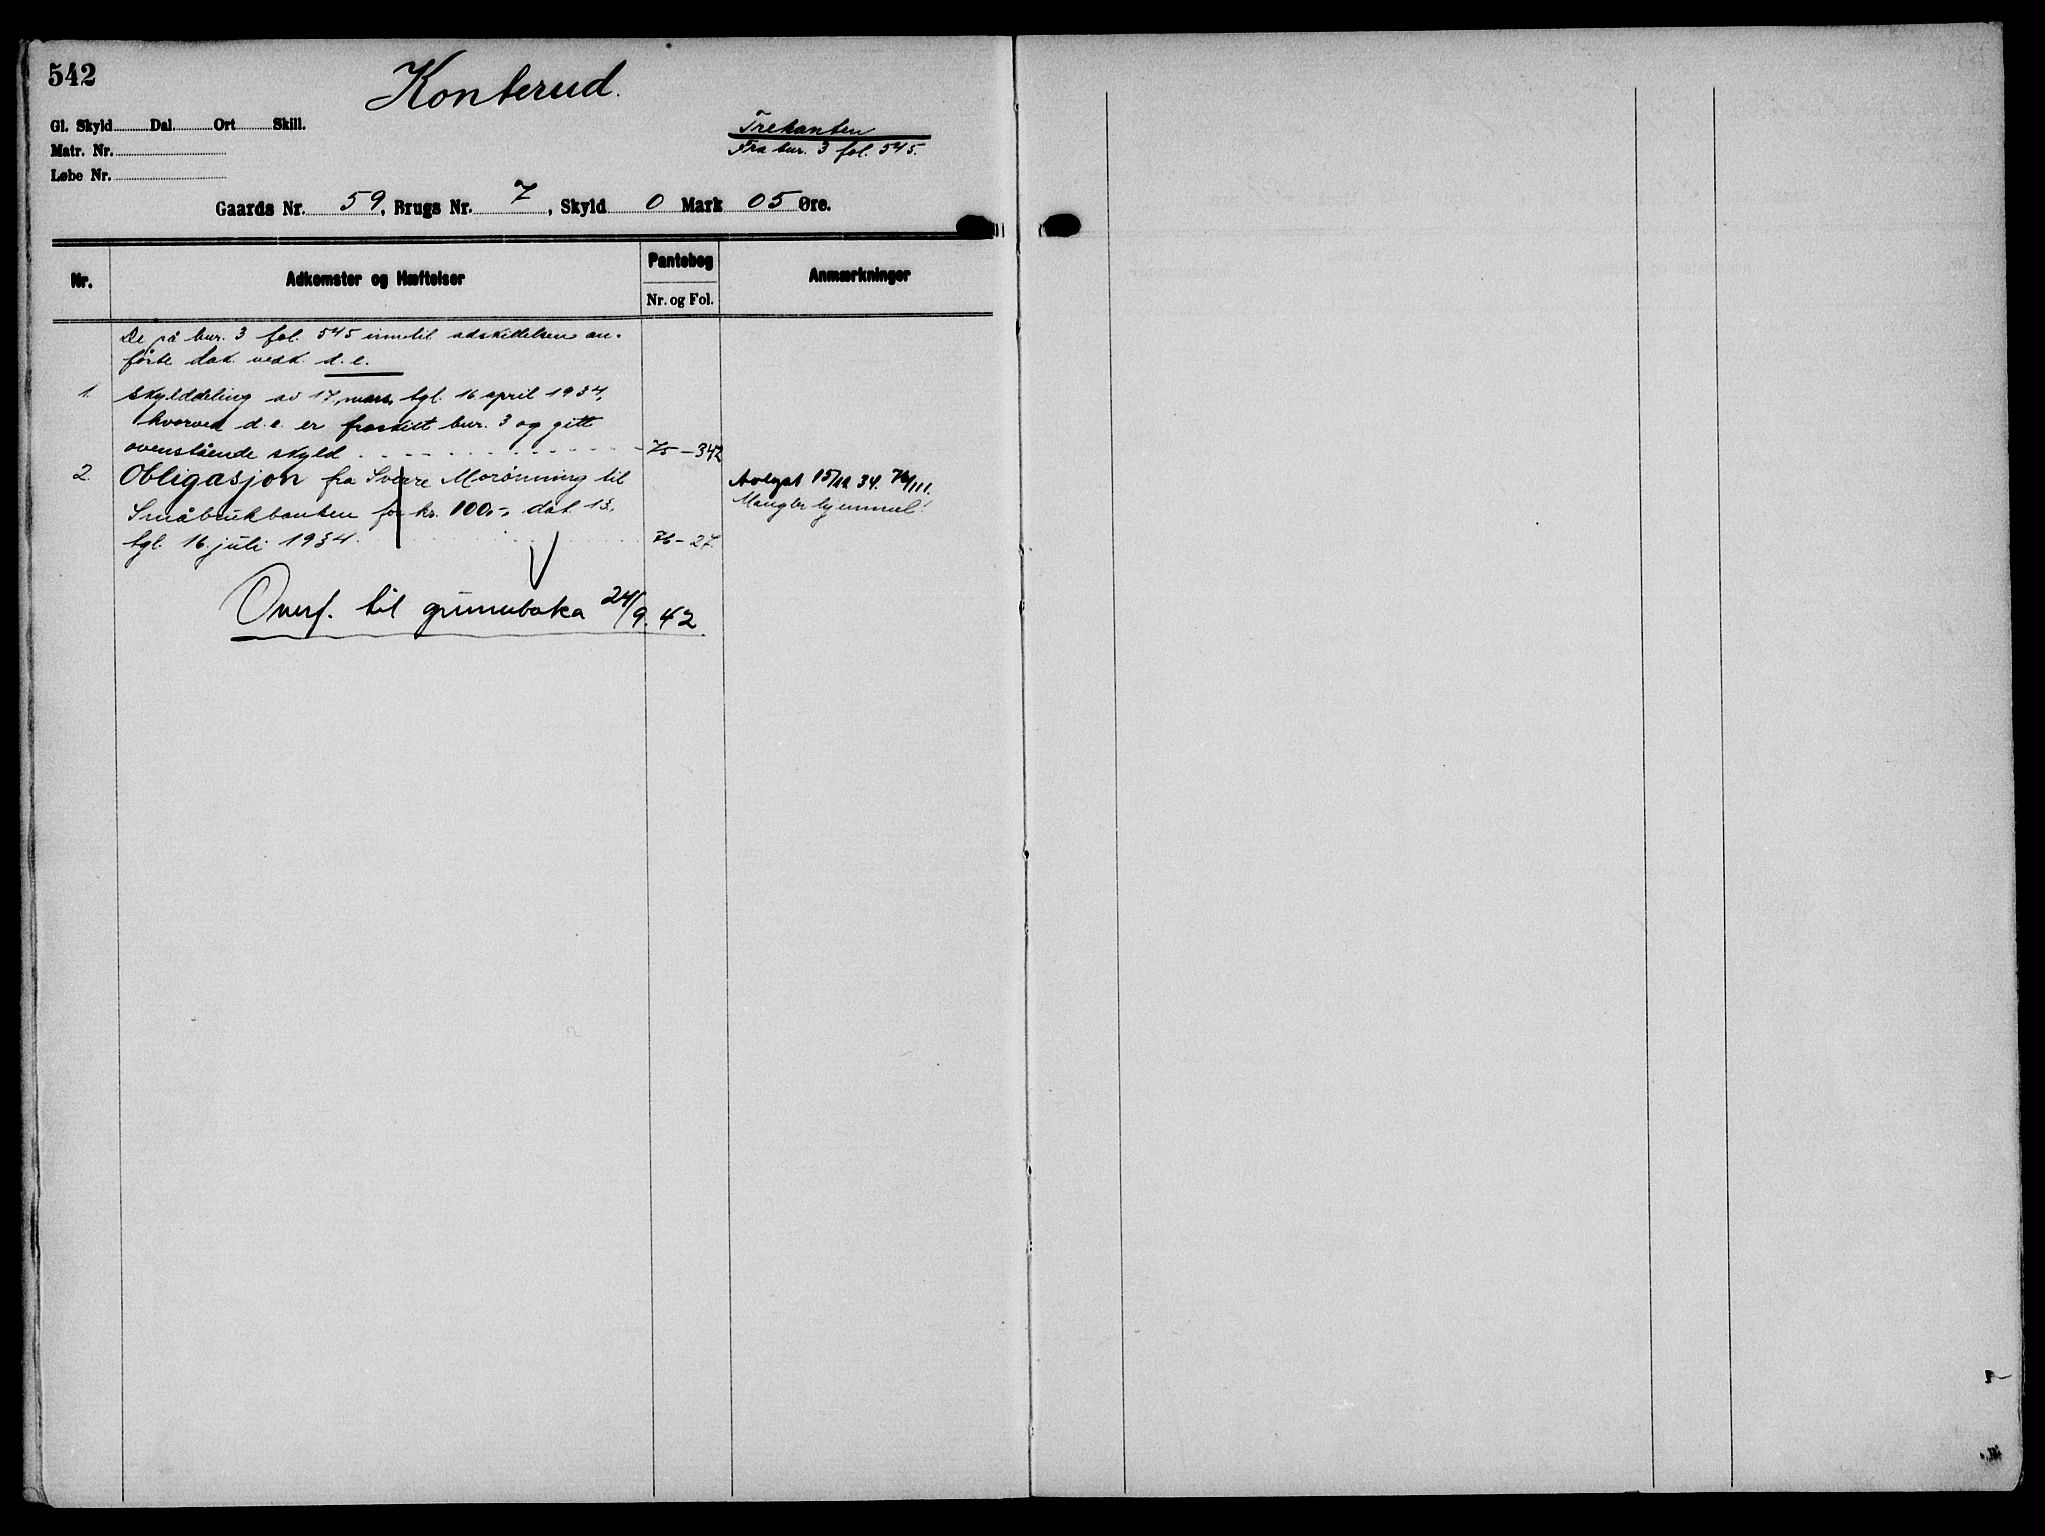 542
Konterud.
Gl. Skyld Dal. Ort Skill.
Matr. Nr.
Løbe Nr.
Trekanten
Fra bnr. 3 fol. 545.
Gaards Nr. 59, Brugs Nr. 7, Skyld 0 Mark 05 Øre.
Nr.
Adkomster og Hæftelser
Pantebog
Nr. og Fol.
Anmærkninger
De på bnr. 3 fol. 545 inntil adskillelsen an-
førte dok. vedk. d.e.
1. Skylddeling av 17. mars, tgl. 16 april 1934,
hvorved d.e. er fraskilt bnr. 3 og gitt
ovenstående skyld 75-342
2. Obligasjon fra Sverre Morønning til
Småbrukbanken for kr. 100,-, dat. 13,
tgl. 16. juli 1934. 76-27.
Avlyst 15/12 34. 76/111.
Mangler hjemmel!
Overf. til grunnboka 24/9.42.